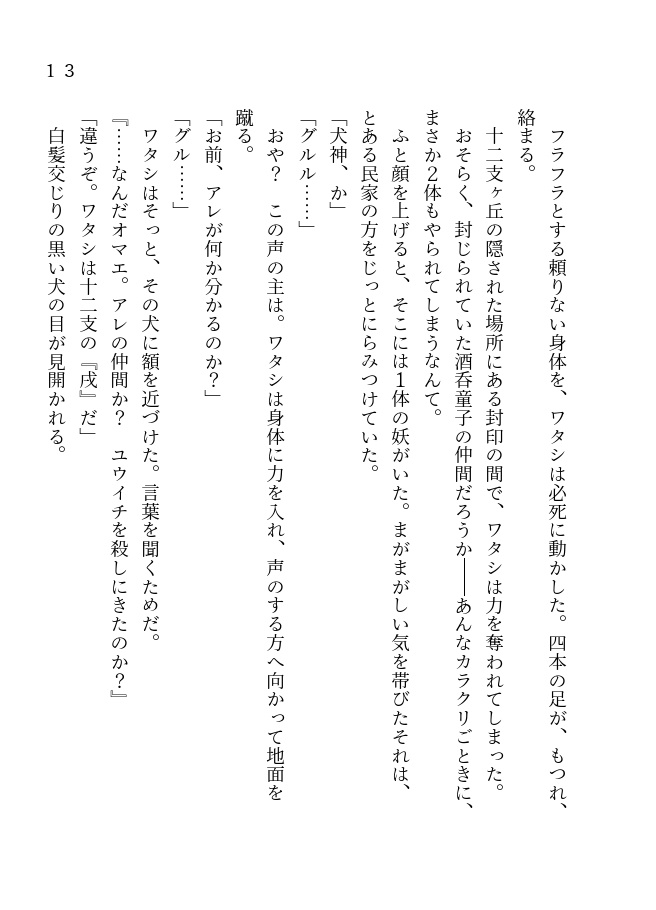 13
　フラフラとする頼りない身体を、ワタシは必死に動かした。四本の足が、もつれ、
絡まる。
　十二支ヶ丘の隠された場所にある封印の間で、ワタシは力を奪われてしまった。
　おそらく、封じられていた酒呑童子の仲間だろうか――あんなカラクリごときに、
まさか２体もやられてしまうなんて。
　ふと顔を上げると、そこには１体の妖がいた。まがまがしい気を帯びたそれは、
とある民家の方をじっとにらみつけていた。
「犬神、か」
「グルル……」
　おや？　この声の主は。ワタシは身体に力を入れ、声のする方へ向かって地面を
蹴る。
「お前、アレが何か分かるのか？」
「グル……」
　ワタシはそっと、その犬に額を近づけた。言葉を聞くためだ。
『……なんだオマエ。アレの仲間か？　ユウイチを殺しにきたのか？』
「違うぞ。ワタシは十二支の『戌』だ」
　白髪交じりの黒い犬の目が見開かれる。